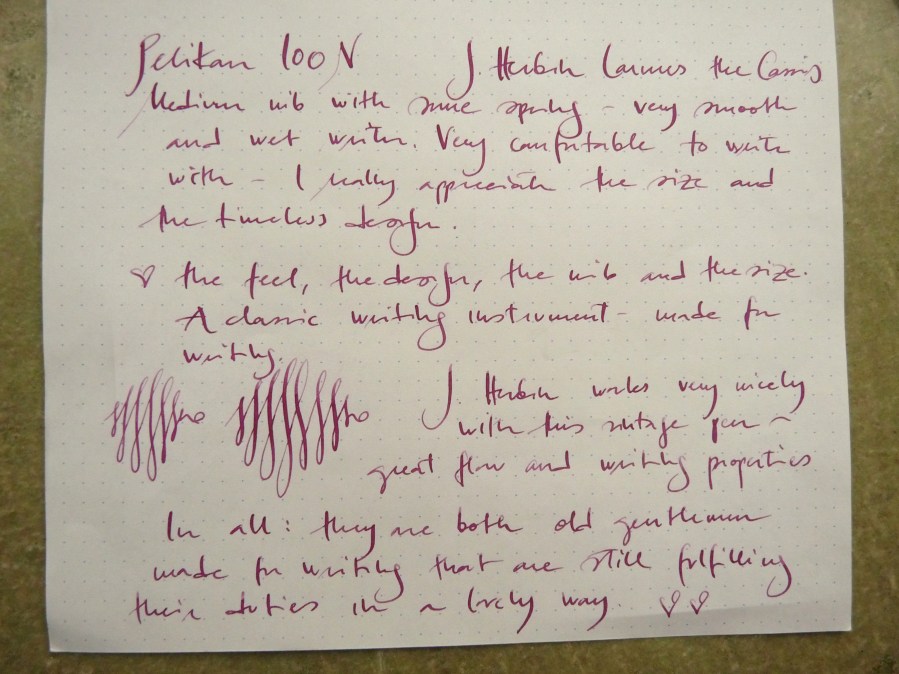 Pelikan 100 N J. Herbin Larmes the Cassis
Medium nib with some spring - very smooth
and wet writer. Very comfortable to write
with - I really appreciate the size and
the timeless design.
♡ the feel, the design, the nib and the size.
A classic writing instrument - made for
writing.
J. Herbin works very nicely
with this vintage pen ~
great flow and writing properties
In all: they are both old gentlemen
made for writing that are still fulfilling
their duties in a lovely way. ♡♡